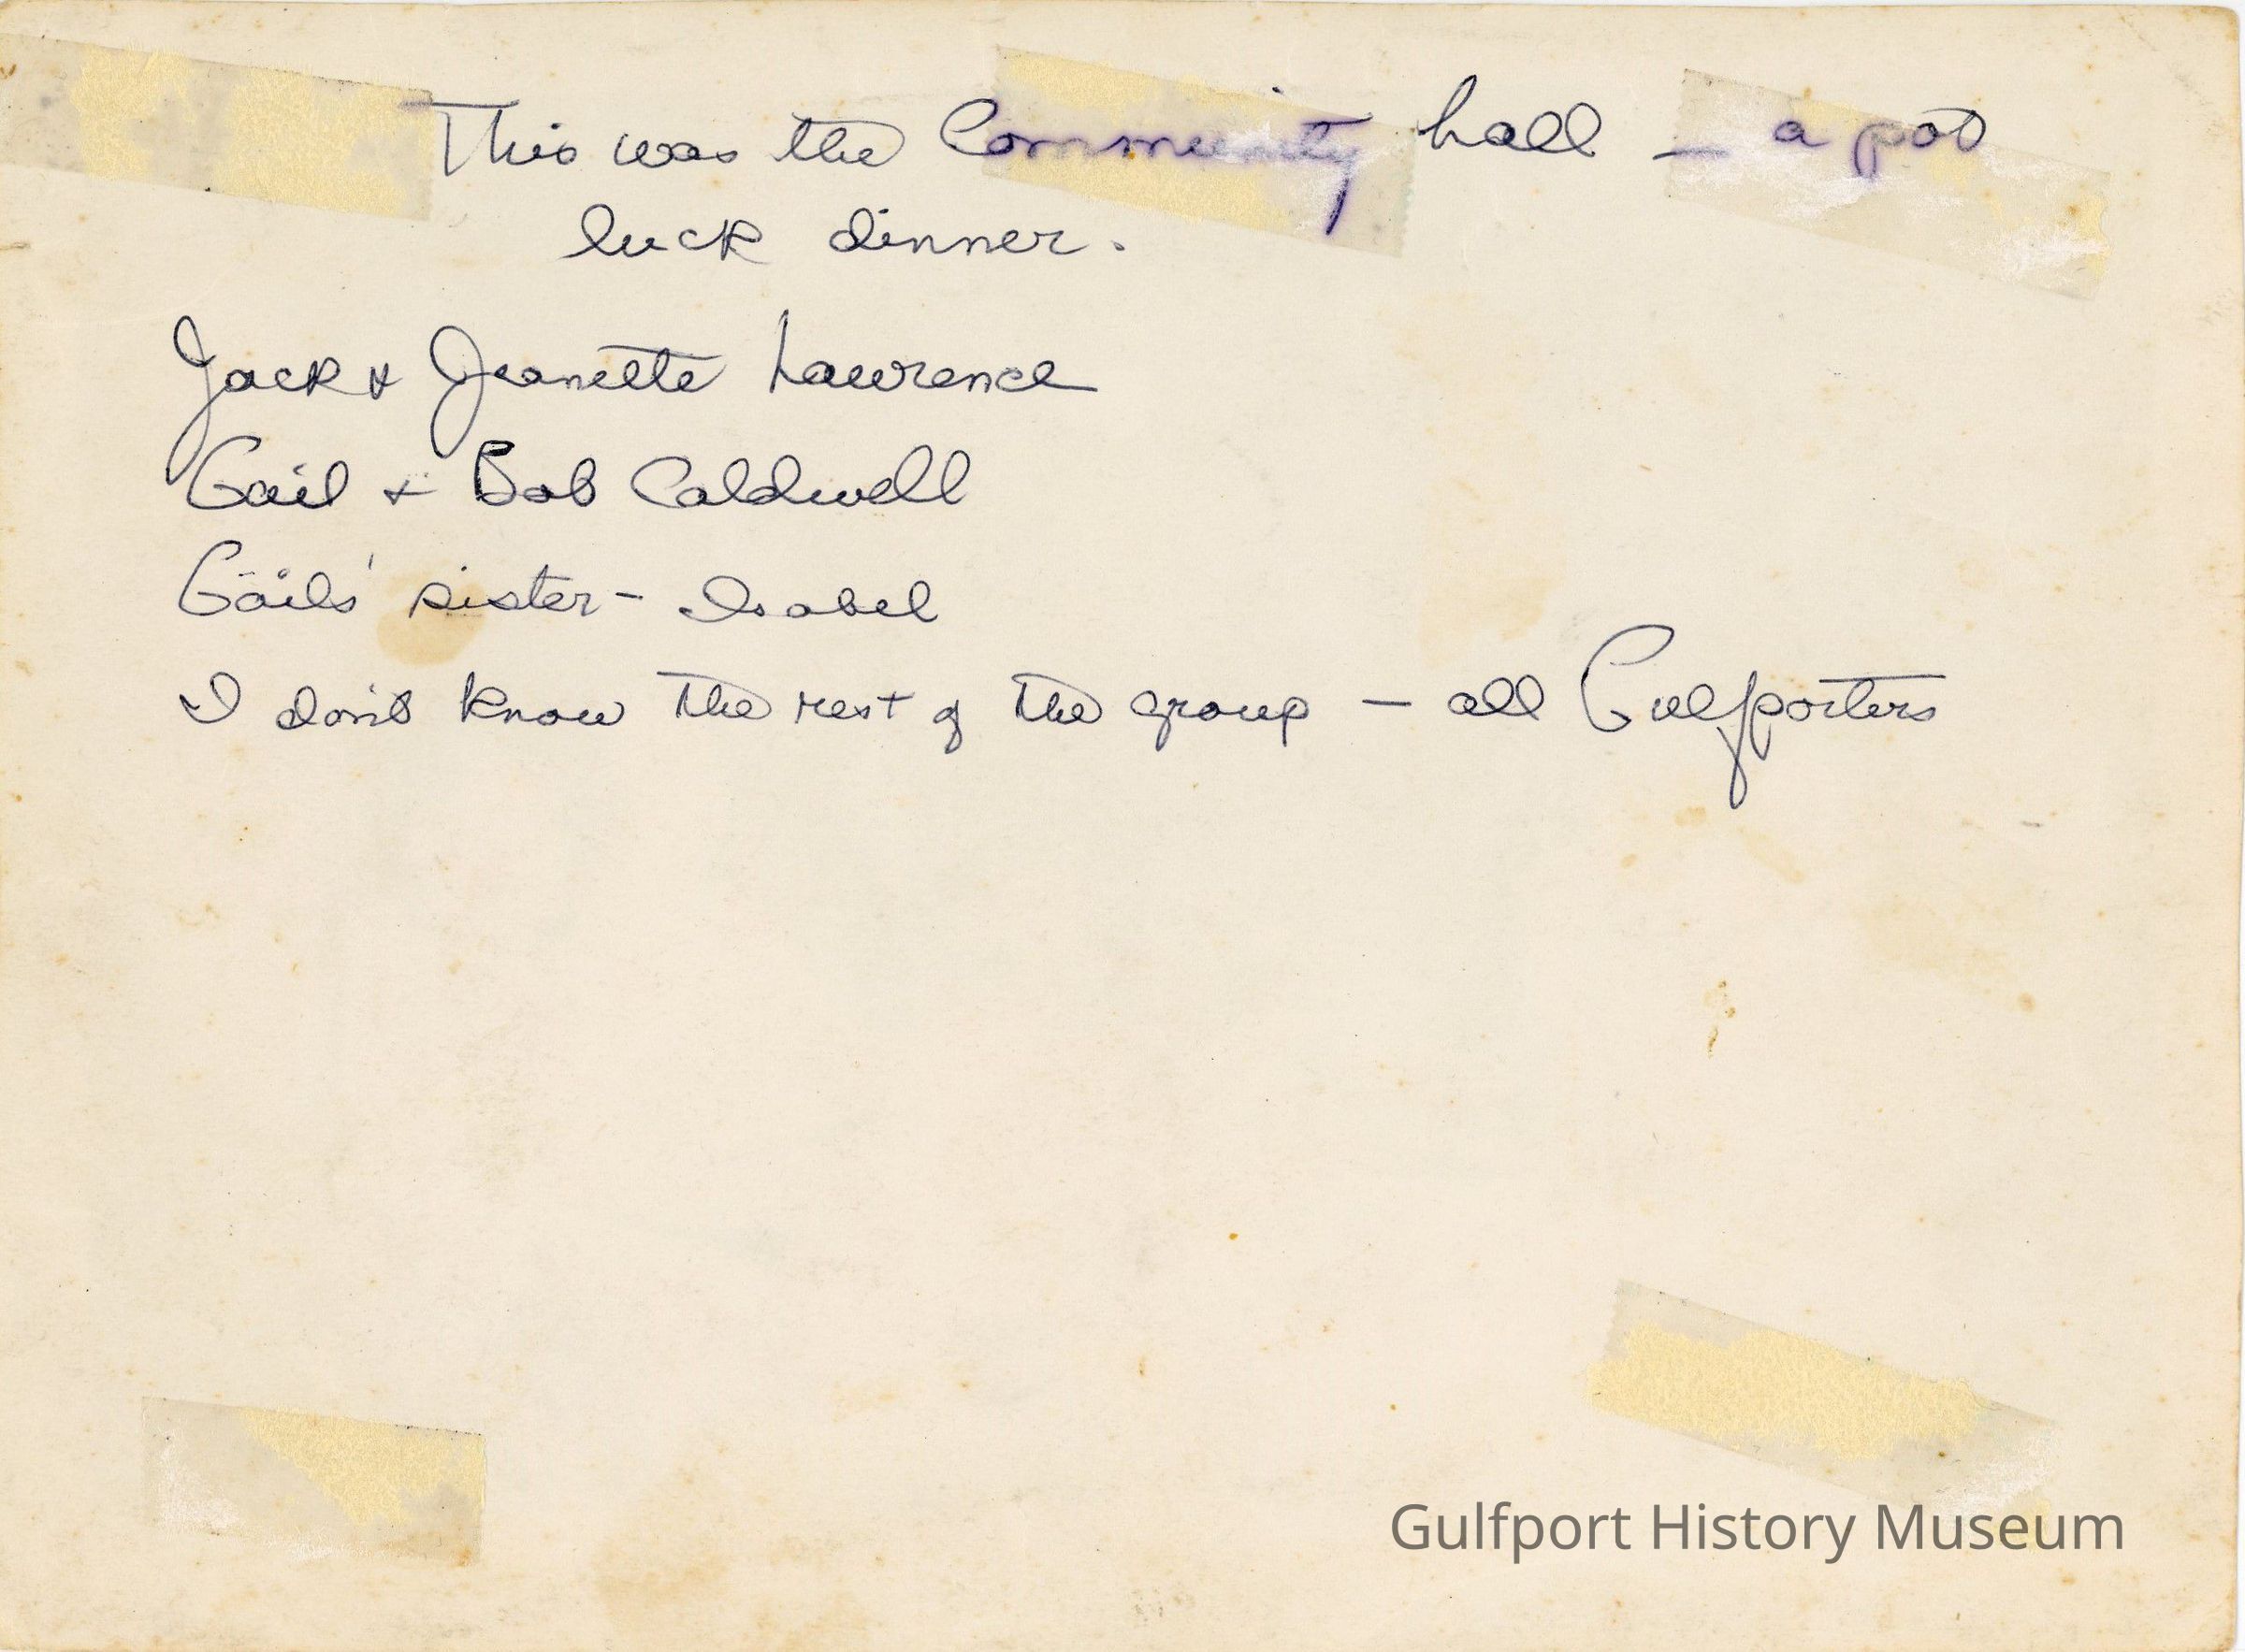 This was the Community hall — a pot
luck dinner.
Jack & Jeanette Lawrence
Gail & Bob Caldwell
Gails' sister - Isabel
I don't know the rest of the group — all Gulfporters
Gulfport History Museum